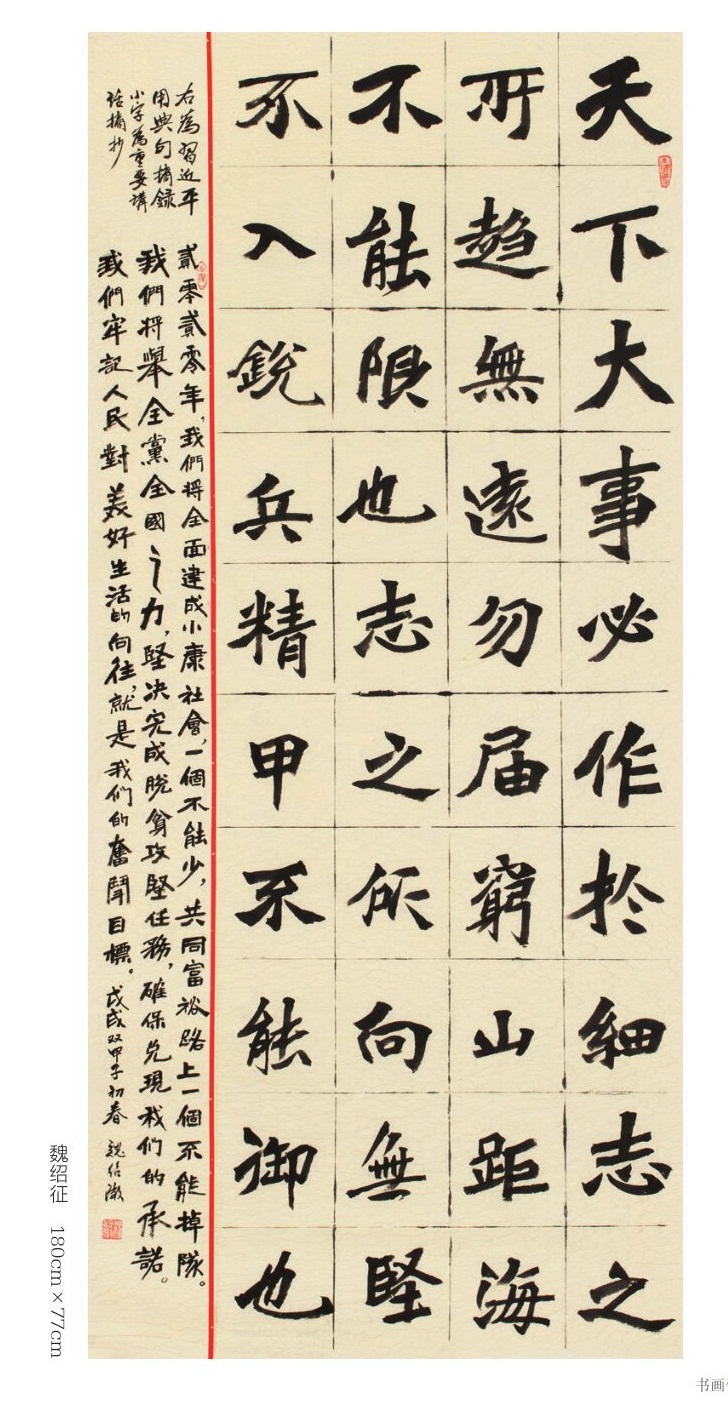 天下大事必作於細志之
所趨無遠勿届窮山距海
不能限也志之所向無堅
不入銳兵精甲不能御也
右為習近平
用典句摘録
小字為重要講
话摘抄
貳零貳零年,我們将全面建成小康社會,一個不能少,共同富裕路上一個不能掉隊。
我們将舉全黨全國之力,堅决完成脱貧攻堅任務,確保兑現我们的承諾。
我們牢記人民對美好生活的向往,就是我们的奮鬥目標。戊戌双甲子初春 魏绍徵
魏绍征 180cm×77cm
书画